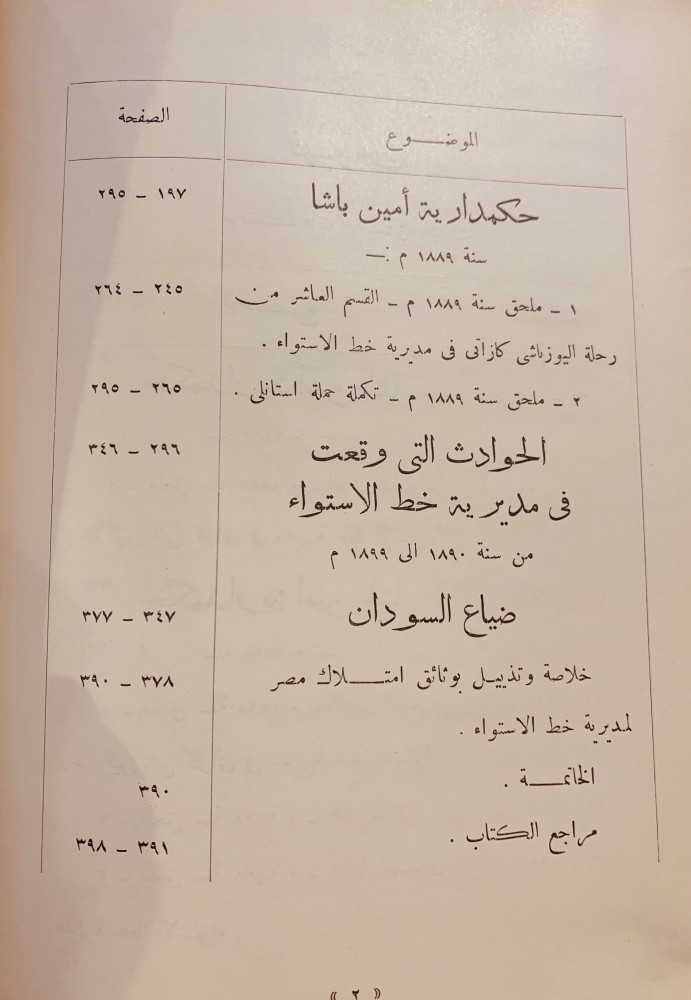 الموضــوع الصفحة
حكمدارية أمين باشا ١٩٧ – ٢٩٥
سنة ١٨٨٩ م :—
١ – ملحق سنة ١٨٨٩ م – القسم العاشر من ٢٤٥ – ٢٦٤
رحلة اليوزباشى كازاتى فى مديرية خط الاستواء .
٢ – ملحق سنة ١٨٨٩ م – تكملة حملة استانلى . ٢٦٥ – ٢٩٥
الحوادث التى وقعت ٢٩٦ – ٣٤٦
فى مديرية خط الاستواء
من سنة ١٨٩٠ الى ١٨٩٩ م
ضياع السودان ٣٤٧ – ٣٧٧
خلاصة وتذييل بوثائق امتــلاك مصر ٣٧٨ – ٣٩٠
لمديرية خط الاستواء .
الخاتمــة . ٣٩٠
مراجع الكتاب . ٣٩١ – ٣٩٨
« ٢ »